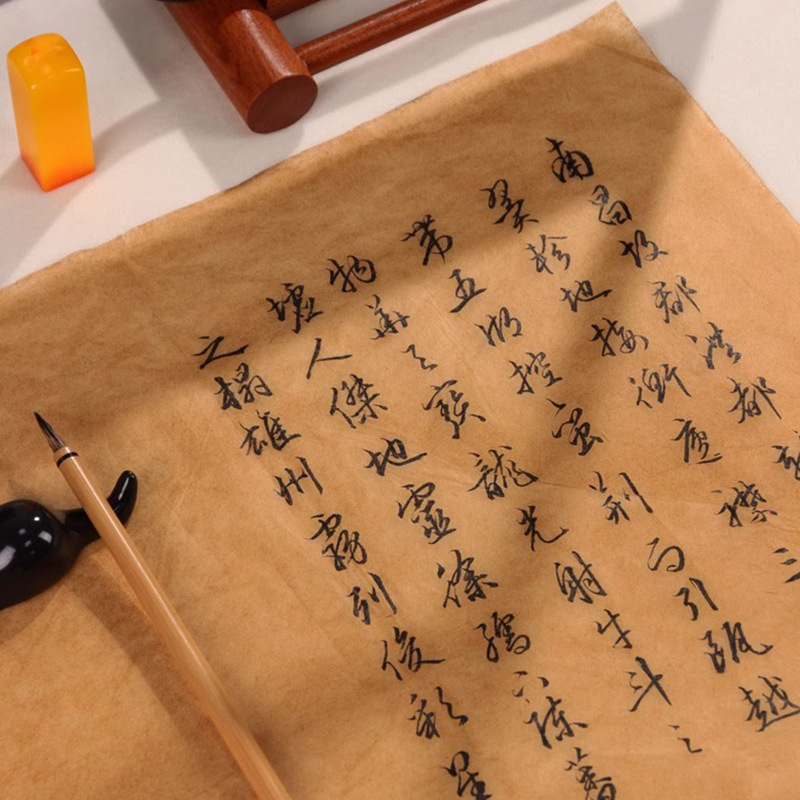 南昌故郡洪都
翼軫地接衡廬襟三
帶五湖控蠻荊而引甌越
物華天寶龍光射牛斗之
墟人傑地靈徐孺下陳蕃
之榻雄州霧列俊彩星